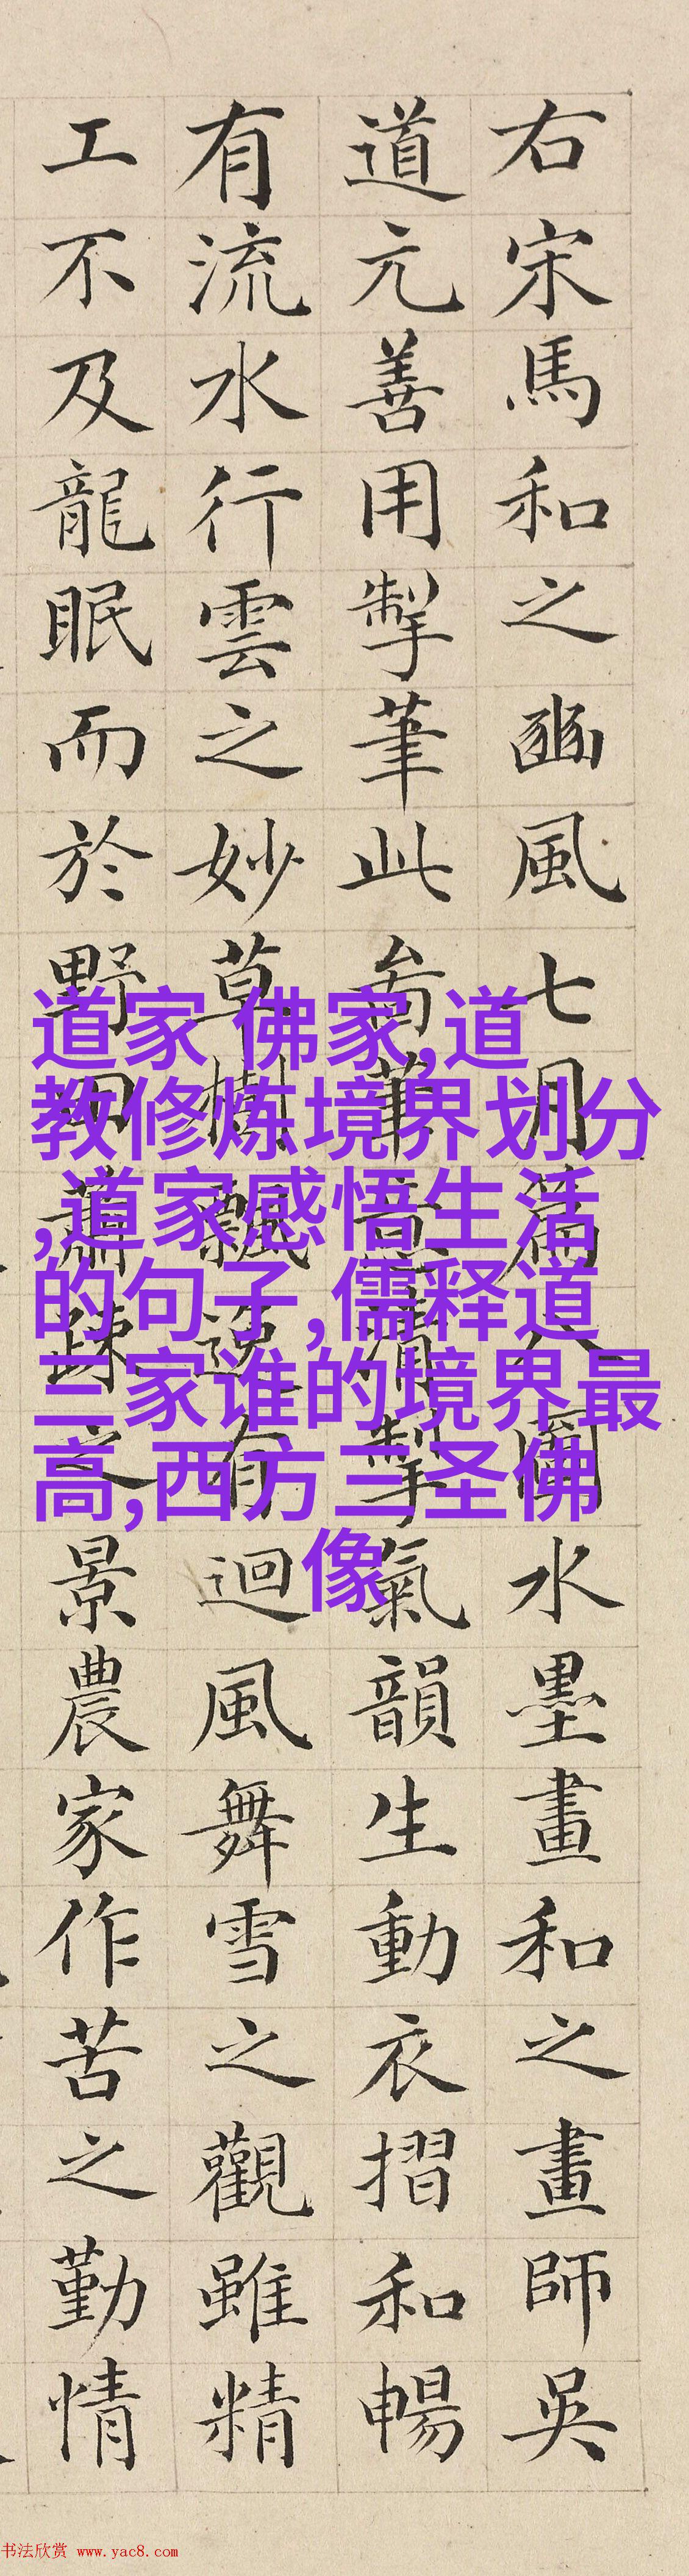 右宋馬和之豳風七月篇八圖水墨畫和之畫師吳
道元善用掣筆此筆意掣氣韻生動衣摺和暢
有流水行雲之妙草樹飄逸有迴風舞雪之觀雖精
工不及龍眠而於野田蕭疎之景農家作苦之勤情
道家 佛家,道
教修炼境界划分
,道家感悟生活
的句子,儒释道
三家谁的境界最
高,西方三圣佛
像
书法欣赏 www.yac8.com